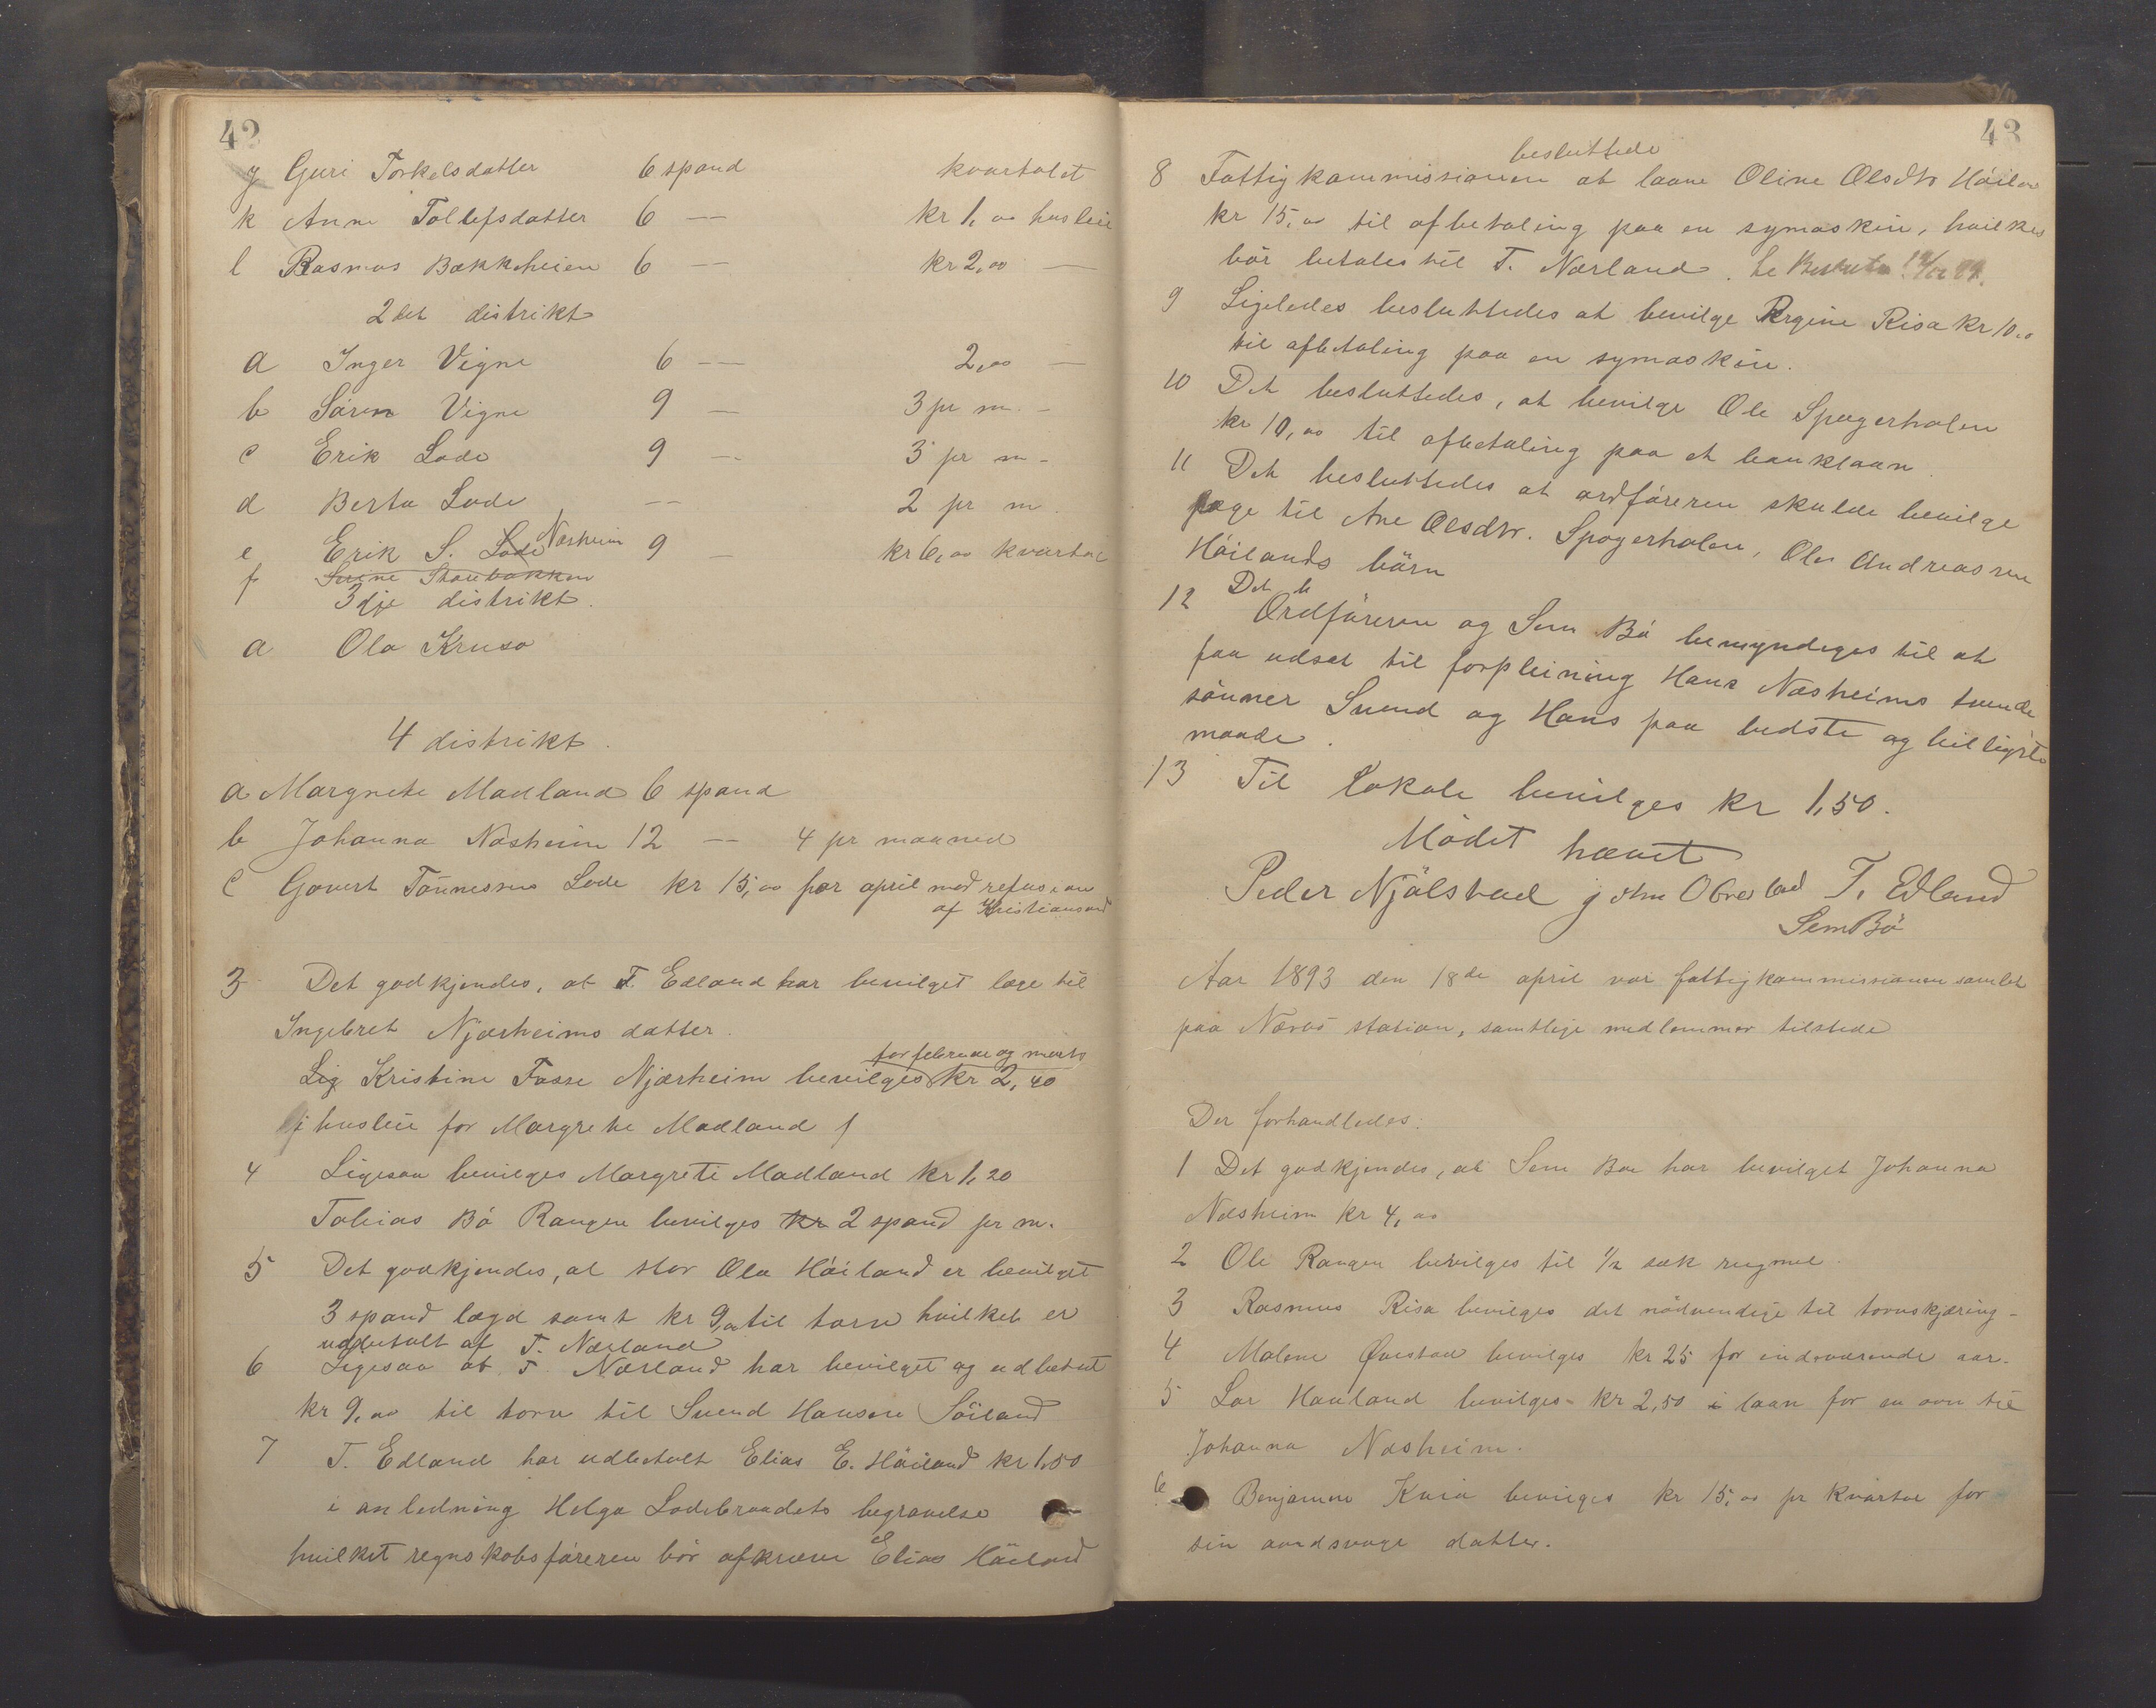 42
j Guri Torkelsdatter 6 spand kvartalet
k Anne Tollefsdatter 6 — kr 1,00 husleie
l Rasmus Bakkeheien 6 — kr 2,00 —
2det distrikt
a Inger Vigre 6 — 2,00 —
b Sören Vigre 9 — 3 pr m. -
c Erik Lode 9 — 3 pr m -
d Berta Lode — 2 pr m.
e Erik S. Lode Næsheim 9 — kr 6,00 kvartal
f Serine Skarebakken
3dje distrikt.
a Ola Kruse
4 distrikt.
a Margrete Madland 6 spand
b Johanna Næsheim 12 — 4 pr maaned
c Govert Tönnesens Lode kr 15,00 for april med refusion
af Kristiansand
3 Det godkjendes, at T. Edland har bevilget læge til
Ingebret Njærheims datter.
for februar og marts
Lig Kristine Tosse Njærheim bevilges kr 2,40
i husleie for Margrete Madland
4 Ligesaa bevilges Margreti Madland kr 1,20
Tobias Bö Rangen bevilges kr 2 spand pr m.
5 Det godkjendes, at stor Ola Höiland er bevilget
3 spand lægd samt kr 9,00 til torv hvilket er
udbetalt af T. Nærland
6 Ligesaa at T. Nærland har bevilget og udbetalt
kr 9,00 til torv til Svend Hansen Söiland
7 T. Edland har udbetalt Elias E. Höiland kr 1,50
i anledning Helga Lodebraadets begravelse
hvilket regnskabsföreren bör afkræve Elias Höiland
43
besluttede
8 Fattigkommissionen at laane Oline Olsdtr Höiland
kr 15,00 til afbetaling paa en symaskin, hvilkes
bör betales til T. Nærland. Se Beslutn
9 Ligeledes besluttedes at bevilge Regine Risa kr 10,00
til afbetaling paa en symaskin.
10 Det besluttedes, at bevilge Ole Spogerholen
kr 10,00 til afbetaling paa et banklaan.
11 Det besluttedes at ordföreren skulde bevilge
læge til Ane Olsdtr. Spogerholen, Ole Andreassen
Höilands börn
Det b
12 Ordföreren og Sem Bö bemyndiges til at
faa udsat til forpleining Hans Næsheims tvende
sönner Svend og Hans paa bedste og billigste
maade.
13 Til lokale bevilges kr 1,50.
Mödet hævet
Peder Njölstad John Obrestad T. Edland
Sem Bö
Aar 1893 den 18de april var fattigkommissionen samlet
paa Nærbö station, samtlige medlemmer tilstede
Der forhandledes:
1 Det godkjendes, at Sem Bö har bevilget Johanna
Næsheim kr 4,00
2 Ole Rangen bevilges til 1/2 sæk rugmel.
3 Rasmus Risa bevilges det nödvendige til torvskjæring -
4 Malene Överstad bevilges kr 25 for indeværende aar.
5 Lar Hauland bevilges kr 2,50 i laan for en ovn til
Johanna Næsheim.
6 Benjamin Kvia bevilges kr 15,00 pr kvartal for
sin aandsvage datter.